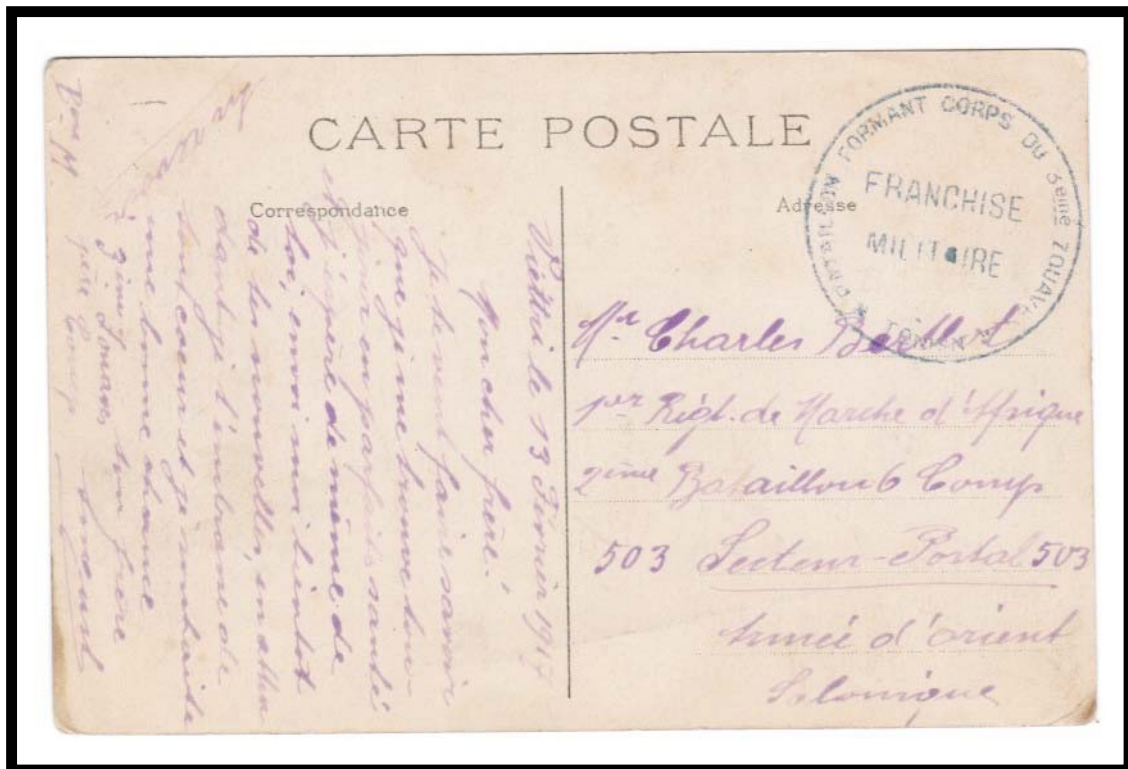 CARTE POSTALE
Correspondance
Adresse
BATAILLON FORMANT CORPS DU 3eme ZOUAVES
TONKIN
FRANCHISE
MILITAIRE
Viétri le 13 Février 1917
Mon cher frère!
Je te vent faire savoir
que je me trouve tou-
jours en parfaite santé
et j'espère de même de
toi, envoi moi bientot
de tes nouvelles, en atten
dant je t'embrasse de
tout coeur et je souhaite
une bonne chance
ton frère
3ème Zouaves
Mr. Charles
1er Régt. de Marche d'Afrique
2ème Bataillon 6 Comp
503 Secteur-Postal 503
Armée d'orient
Salonique